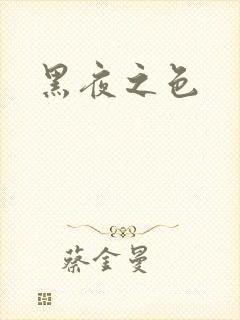 黑夜之色
蔡金曼